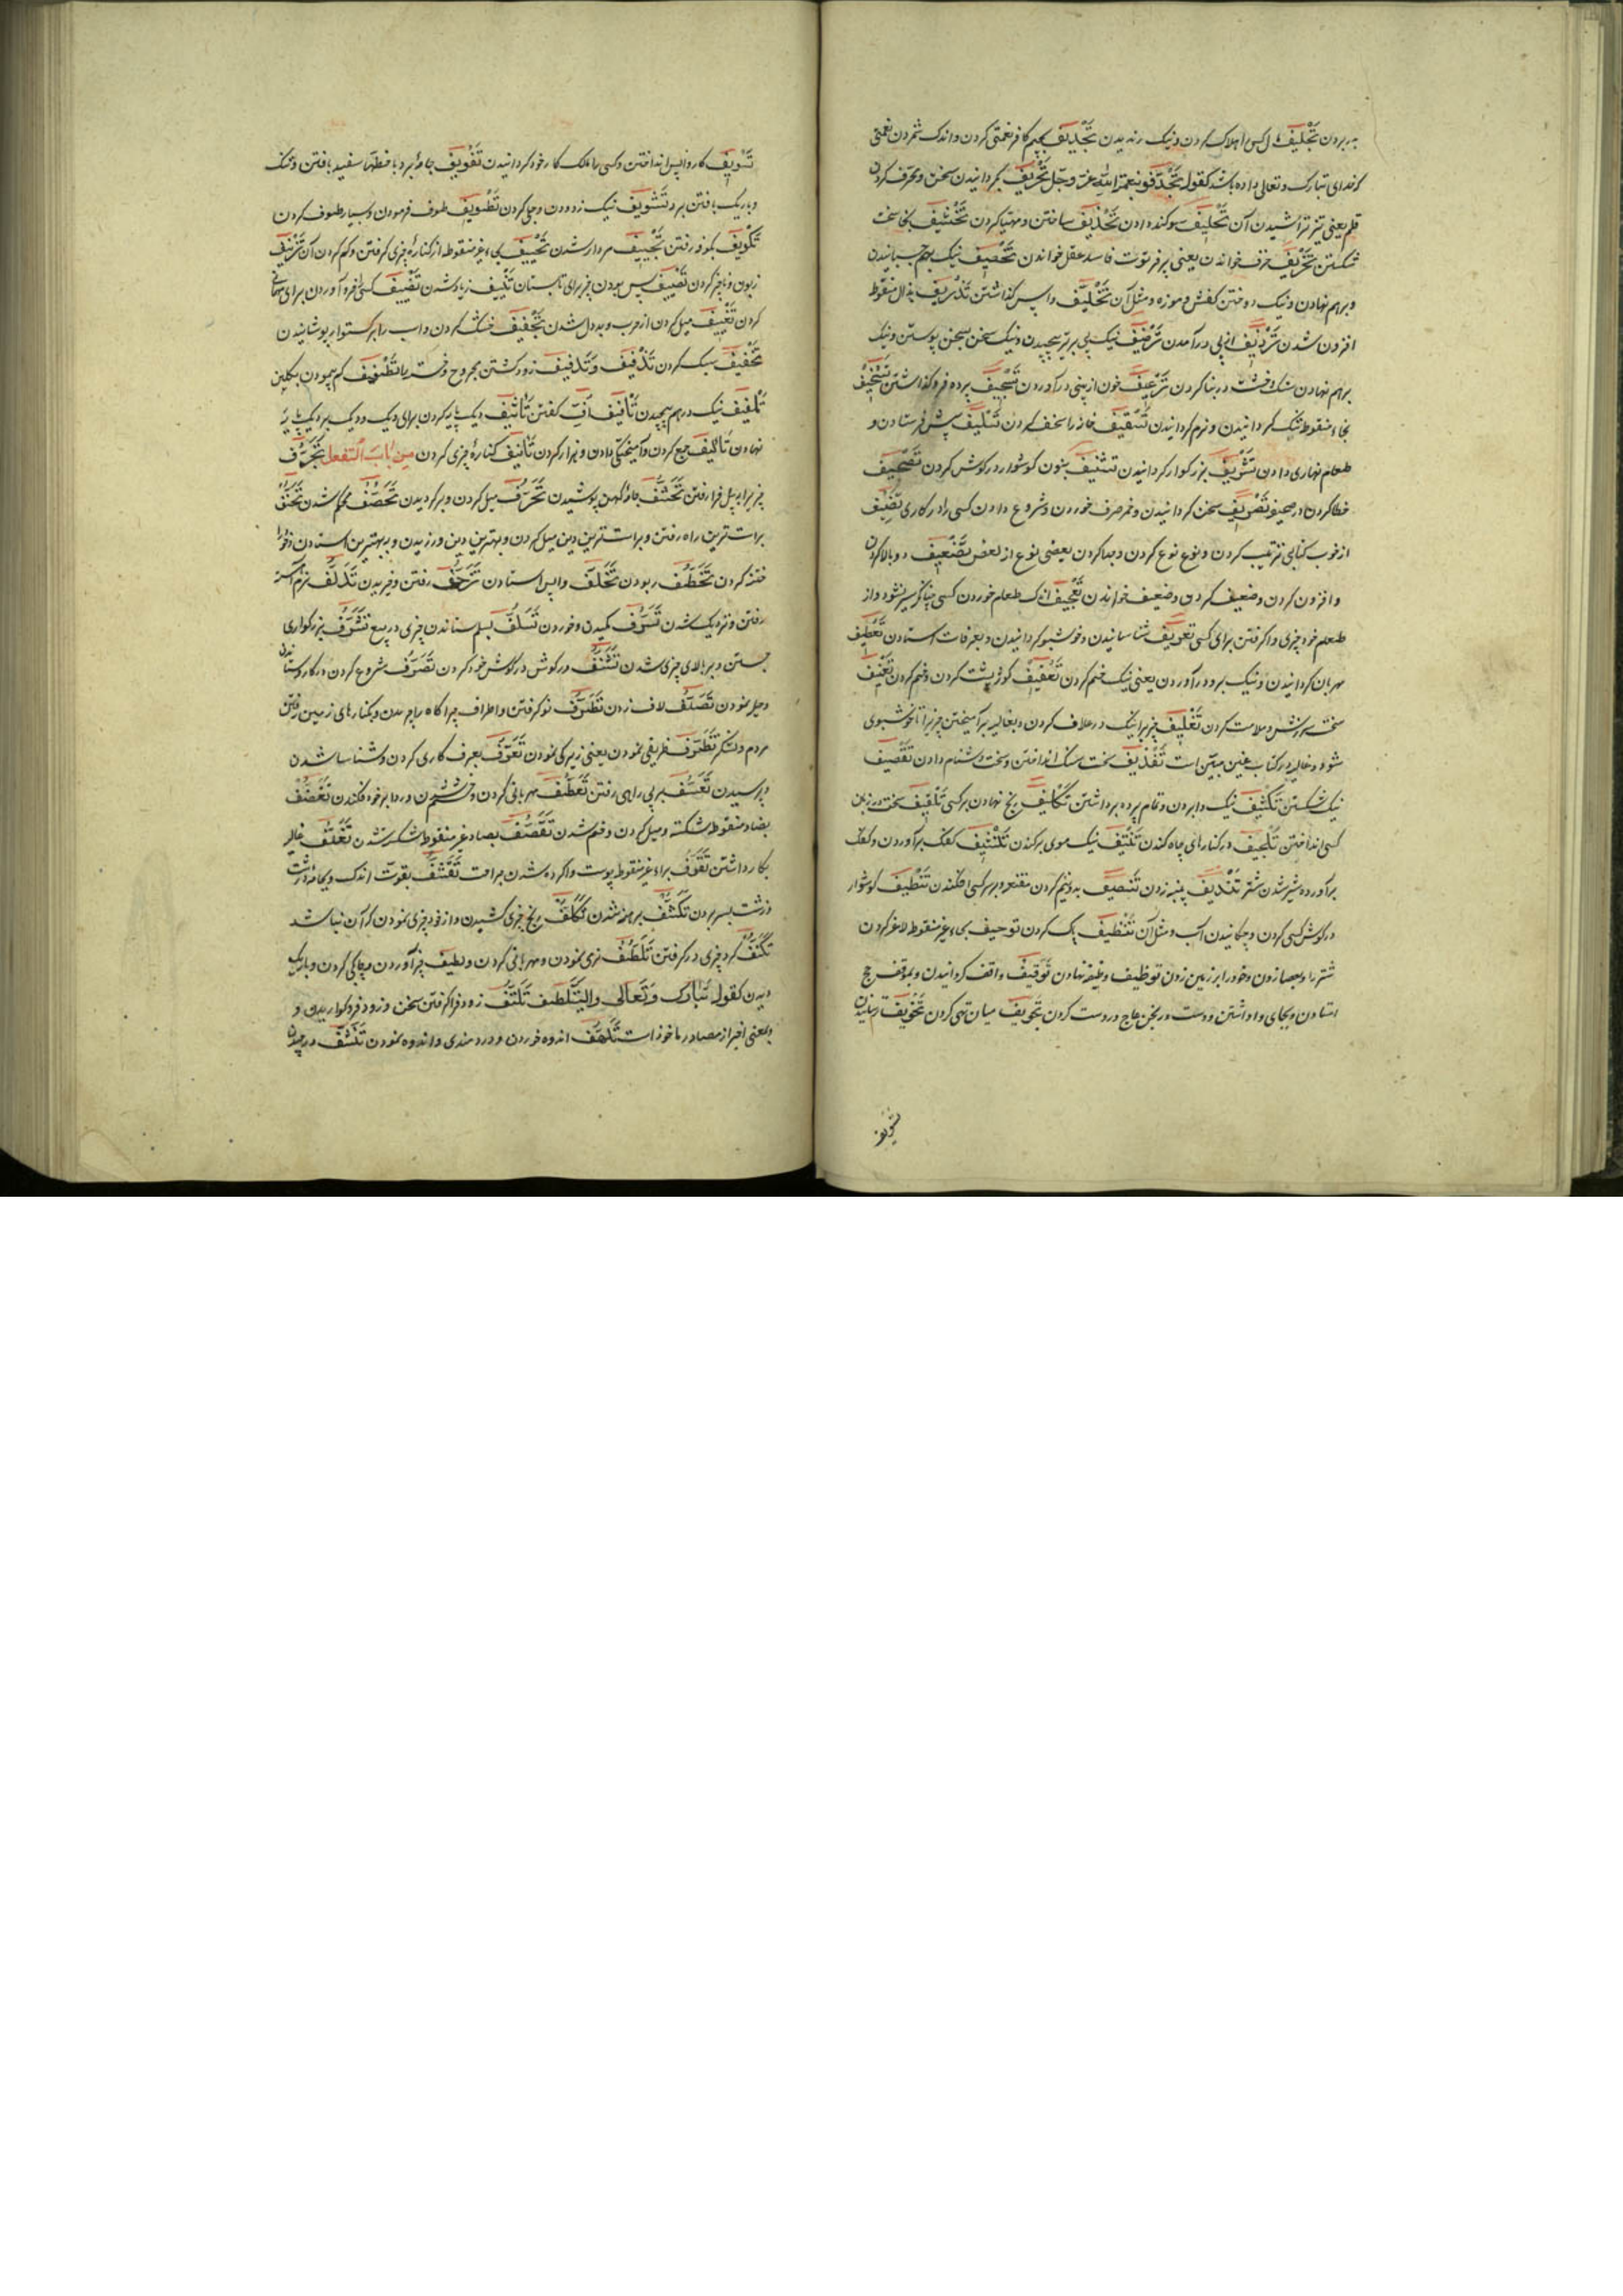 به بردن تَجْلیف مال کس را هلاک کردن و نیک رندیدن تَجْدیف بجیم کافر نعمتی کردن و اندک شمردن نعمتی
که خدای تبارک و تعالی داده باشد کقوله تُجَدِّفُو بنعمة الله عزّ و جلّ تَحْریف بگردانیدن سخن و محرف کردن
قلم یعنی تیز تراشیدن آن تَحْلیف سوگند دادن تَحْذیف ساختن و مهیّا کردن
شکستن تَخْریف خرف خواندن یعنی پیر فرتوت فاسد عقل خواندن تَخْصیف نیک بهم چسبانیدن
و بر هم نهادن و نیک دوختن کفش و موزه و مثل آن تَخْلیف واپس گذاشتن تَذْریف بذال منقوط
افزون شدن تَرْدیف از پی درآمدن تَرْصیف نیک پی بر تیر پیچیدن و نیک سخن بسخن پیوستن و نیک
بر هم نهادن سنک و خشت در بنا کردن تَرْعیف خون از بینی درآوردن تَسْجیف پرده فرو گذاشتن
بخاء منقوط تنک گردانیدن و نرم گردانیدن تَسْقیف خانه را سقف کردن تَسْلیف پیش فرستادن و
طعام نهاری دادن تَشْریف بزرگوار گردانیدن تشنیف بنون گوشوار در گوش کردن تَصْحیف
خطا کردن در صحیفه تَصْریف سخن گردانیدن و خمر صرف خوردن و شروع دادن کسی را در کاری تَصْنیف
از خود کتابی ترتیب کردن و نوع نوع کردن و جدا کردن بعضی نوع از بعض تَضْعیف دو بالا کردن
و افزون کردن و ضعیف کردن و ضعیف خواندن تَعْجیف اندک طعام خوردن کسی چنانکه سیر نشود و از
طعام خود چیزی واگرفتن برای کسی تعریف شناسانیدن و خوشبو گردانیدن و بعرفات استادن تَعْطیف
مهربان گردانیدن و نیک بر دو درآوردن یعنی نیک خم کردن تَعْقیف کوژ پشت کردن و خم کردن تَعْنیف
سخت سرزنش و ملامت کردن تَغْلیف چیز را نیک در غلاف کردن و بغالیه برآمیختن چیزی را تا خوشبوی
شود و غالیه در کتاب غین مبیّن است تَقْذیف سخت سنک انداختن و سخت دشنام دادن تَقْصیف
نیک شکستن تَکْشیف نیک وا بردن و تمام پرده برداشتن تَکْلیف رنج نهادن بر کسی تَلْقیف سخت بر زمین
کسی انداختن تَلْجیف در کنارهای چاه کندن تَنْتیف نیک موی برکندن تَکْثیف کفک برآوردن و کفک
برآورده شیر شدن شتر تَنْدیف پنبه زدن تَنْصیف بدو نیم کردن و مقنعه بر سر کسی افکندن تَنْطیف گوشوار
در گوش کسی کردن و چکانیدن آب و مثل آن تَنْظیف پاک کردن توحیف بحاء غیر منقوط لاغر کردن
شتر را و بعصا زدن و خود را بر زمین زدن توظیف وظیفه نهادن تَوْقیف واقف گردانیدن و بموقف حج
استادن و بجای واداشتن و دست ورنجن عاج در دست کردن تَجْویف میان تهی کردن تَخْویف ترسانیدن
تسویف
تَسْویف کار واپس انداختن و کسی را مالک کار خود گردانیدن تَفْویف جامه برد با خطها سفید بافتن و تنک
و باریک بافتن برد تَشْویف نیک زدودن و جلی کردن تَطْویف طوف فرمودن و بسیار طوف کردن
تَکْویف بکوفه رفتن تَجْییف مردار شدن تَحْییف بحاء غیر منقوط از کناره چیزی گرفتن و کم کردن آن تَزْییف
زبون و ناچیز کردن تَصْییف بس بودن چیز برای تابستان تَنْییف زیاد شدن تَضْییف کسی را فرو آوردن برای مهمانی
کردن تَغْییف میل کردن از حرب و بددل شدن تَجْفیف خشک کردن و اسب را برگستوان پوشانیدن
تَخْفیف سبک کردن تَذْفیف و تَدْفیف زود کشتن مجروح و خسته را تَطْفیف کم پیمودن بکیل
تَلْفیف نیک در هم پیچیدن تَأْفیف اُفّ گفتن تَأثیف دیک پایه کردن برای دیک و دیک بر دیک پایه
نهادن تَألیف جمع کردن و آمیختگی دادن و هزار کردن تَأنیف کناره چیزی کردن مِن بابِ التفعل تَجَرُّف
چیز را به بیل فرا رفتن تَحَشُّف جامه کهن پوشیدن تَحَرُّف میل کردن و برگردیدن تَحَصُّف محکم شدن تَحَنُّف
براست ترین راه رفتن و براست ترین دین میل کردن و بهترین دین ورزیدن و به بهترین استادن و خود را
ختنه کردن تَخَطُّف ربودن تَخَلُّف واپس استادن تَزَحُّف رفتن و خزیدن تَدَلُّف نرم آهسته
رفتن و نزدیک شدن تَسَرُّف مکیدن و خوردن تَسَلُّف بسلم ستاندن چیزی در بیع تَشَرُّف بزرگواری
جستن و بر بالای چیزی شدن تَشَنُّف در گوش در گوش خود کردن تَصَرُّف شروع کردن در کار و ستاندن
و حیله نمودن تَصَلُّف لاف زدن تَطَرُّف نو گرفتن و اطراف چراگاه را چریدن و بکنارهای زمین رفتن
مردم و لشکر تَظَرُّف ظریفی نمودن یعنی زیرکی نمودن تَعَرُّف بعرف کاری کردن و شناسا شدن
و پرسیدن تَعَسُّف بر بی راهی رفتن تَعَطُّف مهربانی کردن و خم شدن و ردا بر خود فکندن تَغَضُّف
بضاد منقوط شکسته و میل کردن و خم شدن تَقَصُّف بصاد غیر منقوط شکسته شدن تَغَلُّف غالیه
بکار داشتن تَقَرُّف براء غیر منقوط پوست واکرده شدن جراحت تَقَشُّف بقوت اندک و بجامه درشت
درشت بسر بردن تَکَشُّف برهنه شدن تَکَلُّف رنج چیزی کشیدن و از خود چیزی نمودن که آن نباشد
تَکَنُّف گرد چیزی در گرفتن تَلَطُّف نرمی نمودن و مهربانی کردن و لطیف چیز آوردن و چابکی کردن و باریک
دیدن کقوله تَبَارَک وَ تَعالی ولیَتَلَطَّف تَلَقُّف زود فرا گرفتن سخن و زود فرو گواریدن و
بمعنی اخیر از مصادر ماخوذ است تَلَهُّف اندوه خوردن و دردمندی و اندوه نمودن تَنَشُّف در چیدن